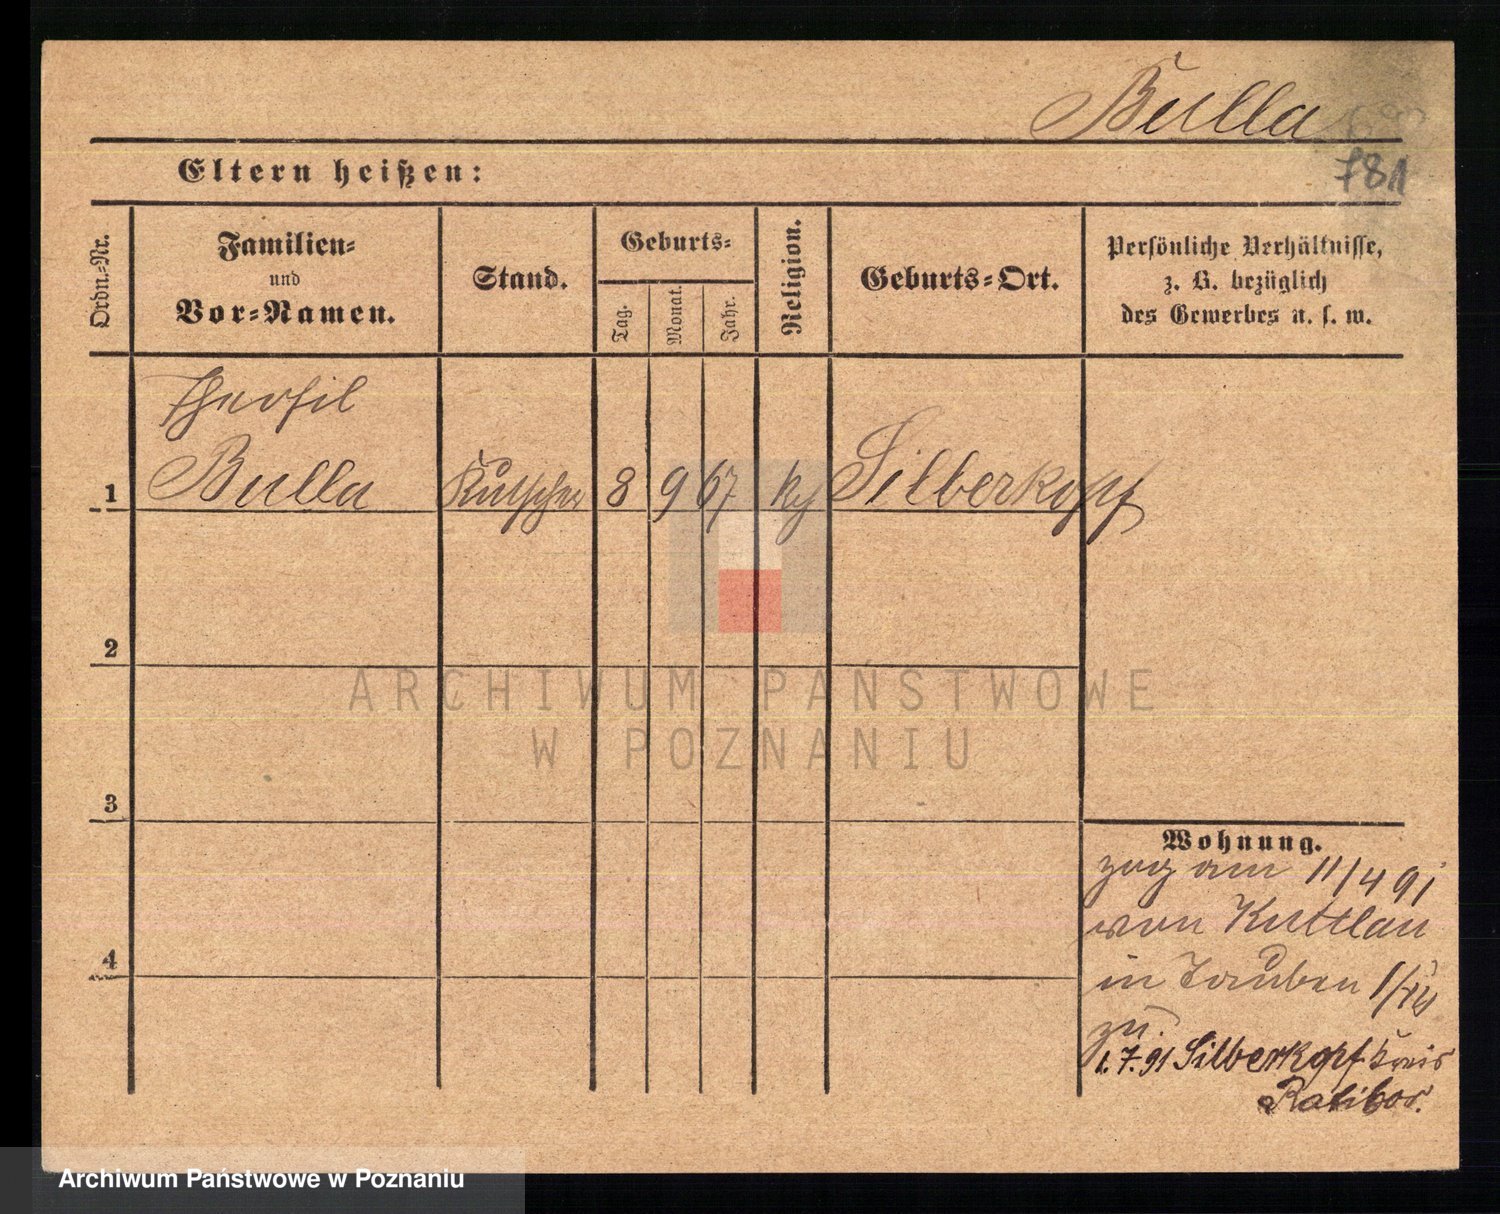 Bulla
781
Eltern heißen:
Ordn.-Nr.
Familien-
und
Vor-Namen.
Stand.
Geburts-
Tag.
Monat.
Jahr.
Religion.
Geburts-Ort.
Persönliche Verhältnisse,
z. B. bezüglich
des Gewerbes u. s. w.
1
Bulla
Kutscher
8
9
67
Silberkopf
2
3
4
ARCHIWUM PAŃSTWOWE
W POZNANIU
Wohnung.
zog am 11/4 91
von Kuttlau
in
zu
1.7.91 Silberkopf Kreis
Ratibor.
Archiwum Państwowe w Poznaniu